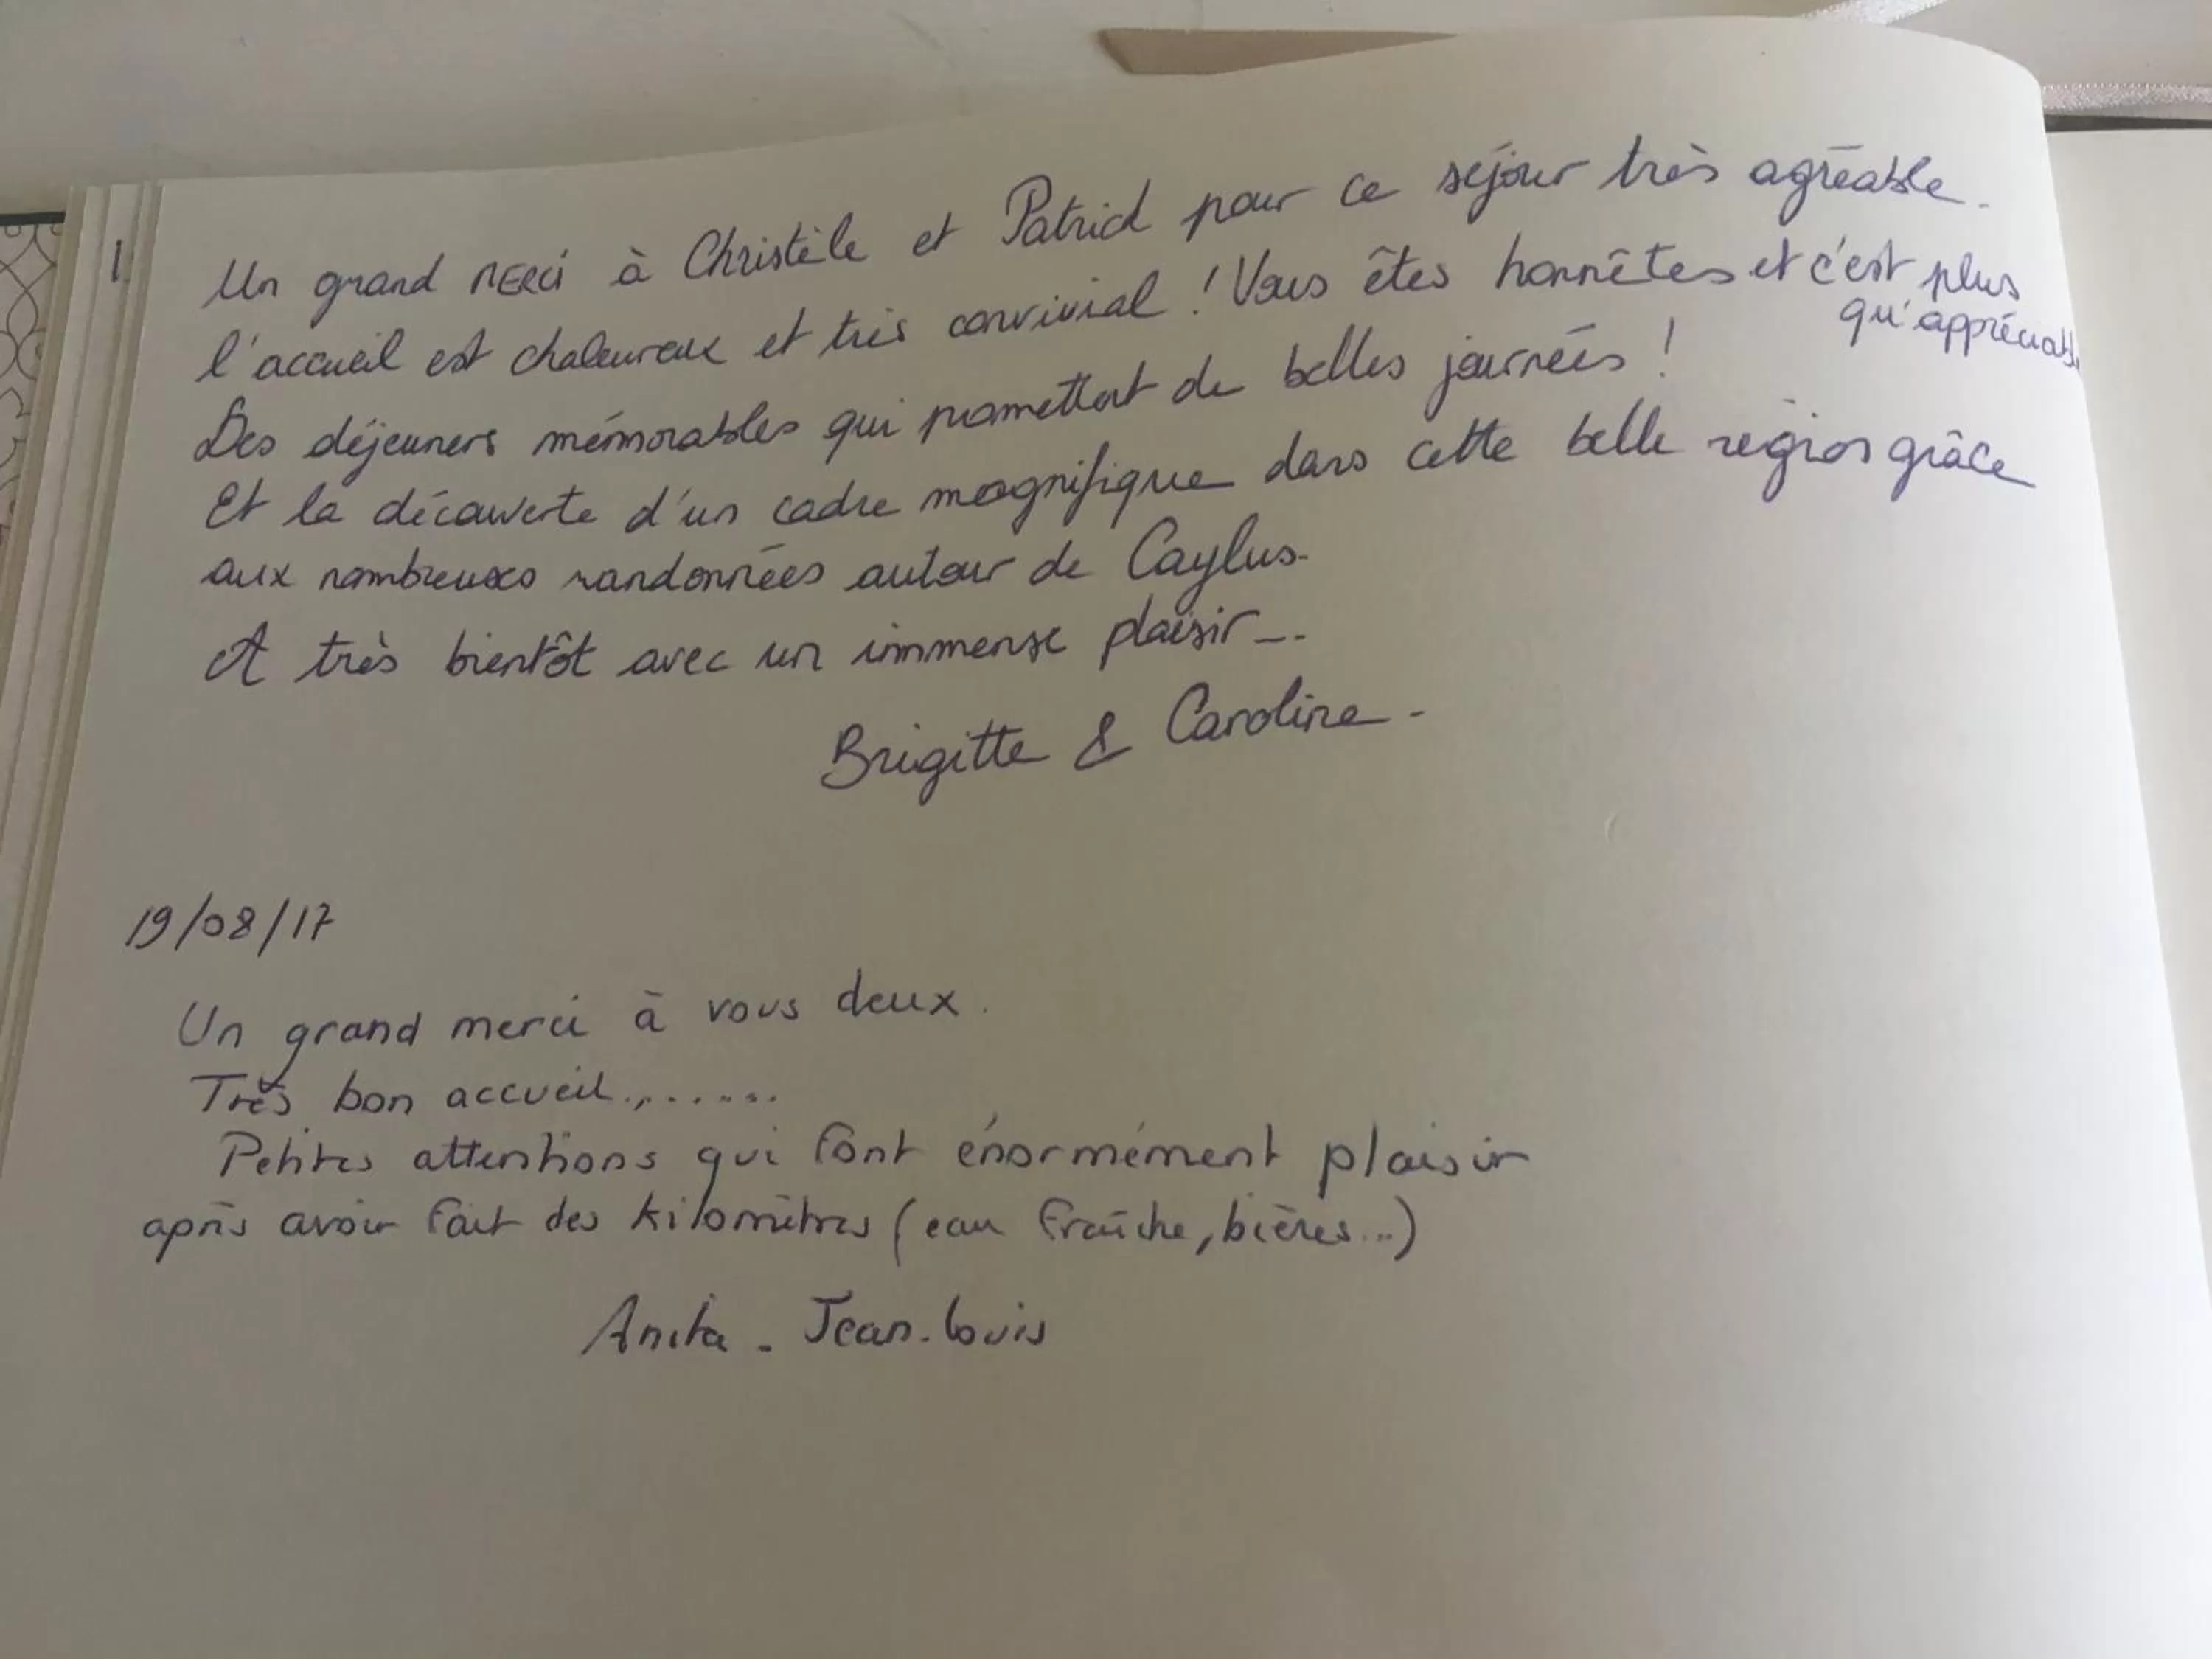 Un grand merci à Christèle et Patrick pour ce séjour très agréable.
l'accueil est chaleureux et très convivial ! Vous êtes honnêtes et c'est plus
qu'appréciable
Des déjeuners mémorables qui promettent de belles journées !
Et la découverte d'un cadre magnifique dans cette belle région grâce
aux nombreuses randonnées autour de Caylus.
A très bientôt avec un immense plaisir...
Brigitte & Caroline.
19/08/17
Un grand merci à vous deux.
Très bon accueil........
Petites attentions qui font énormément plaisir
après avoir fait des kilomètres (eau fraîche, bières...)
Anita - Jean-Louis